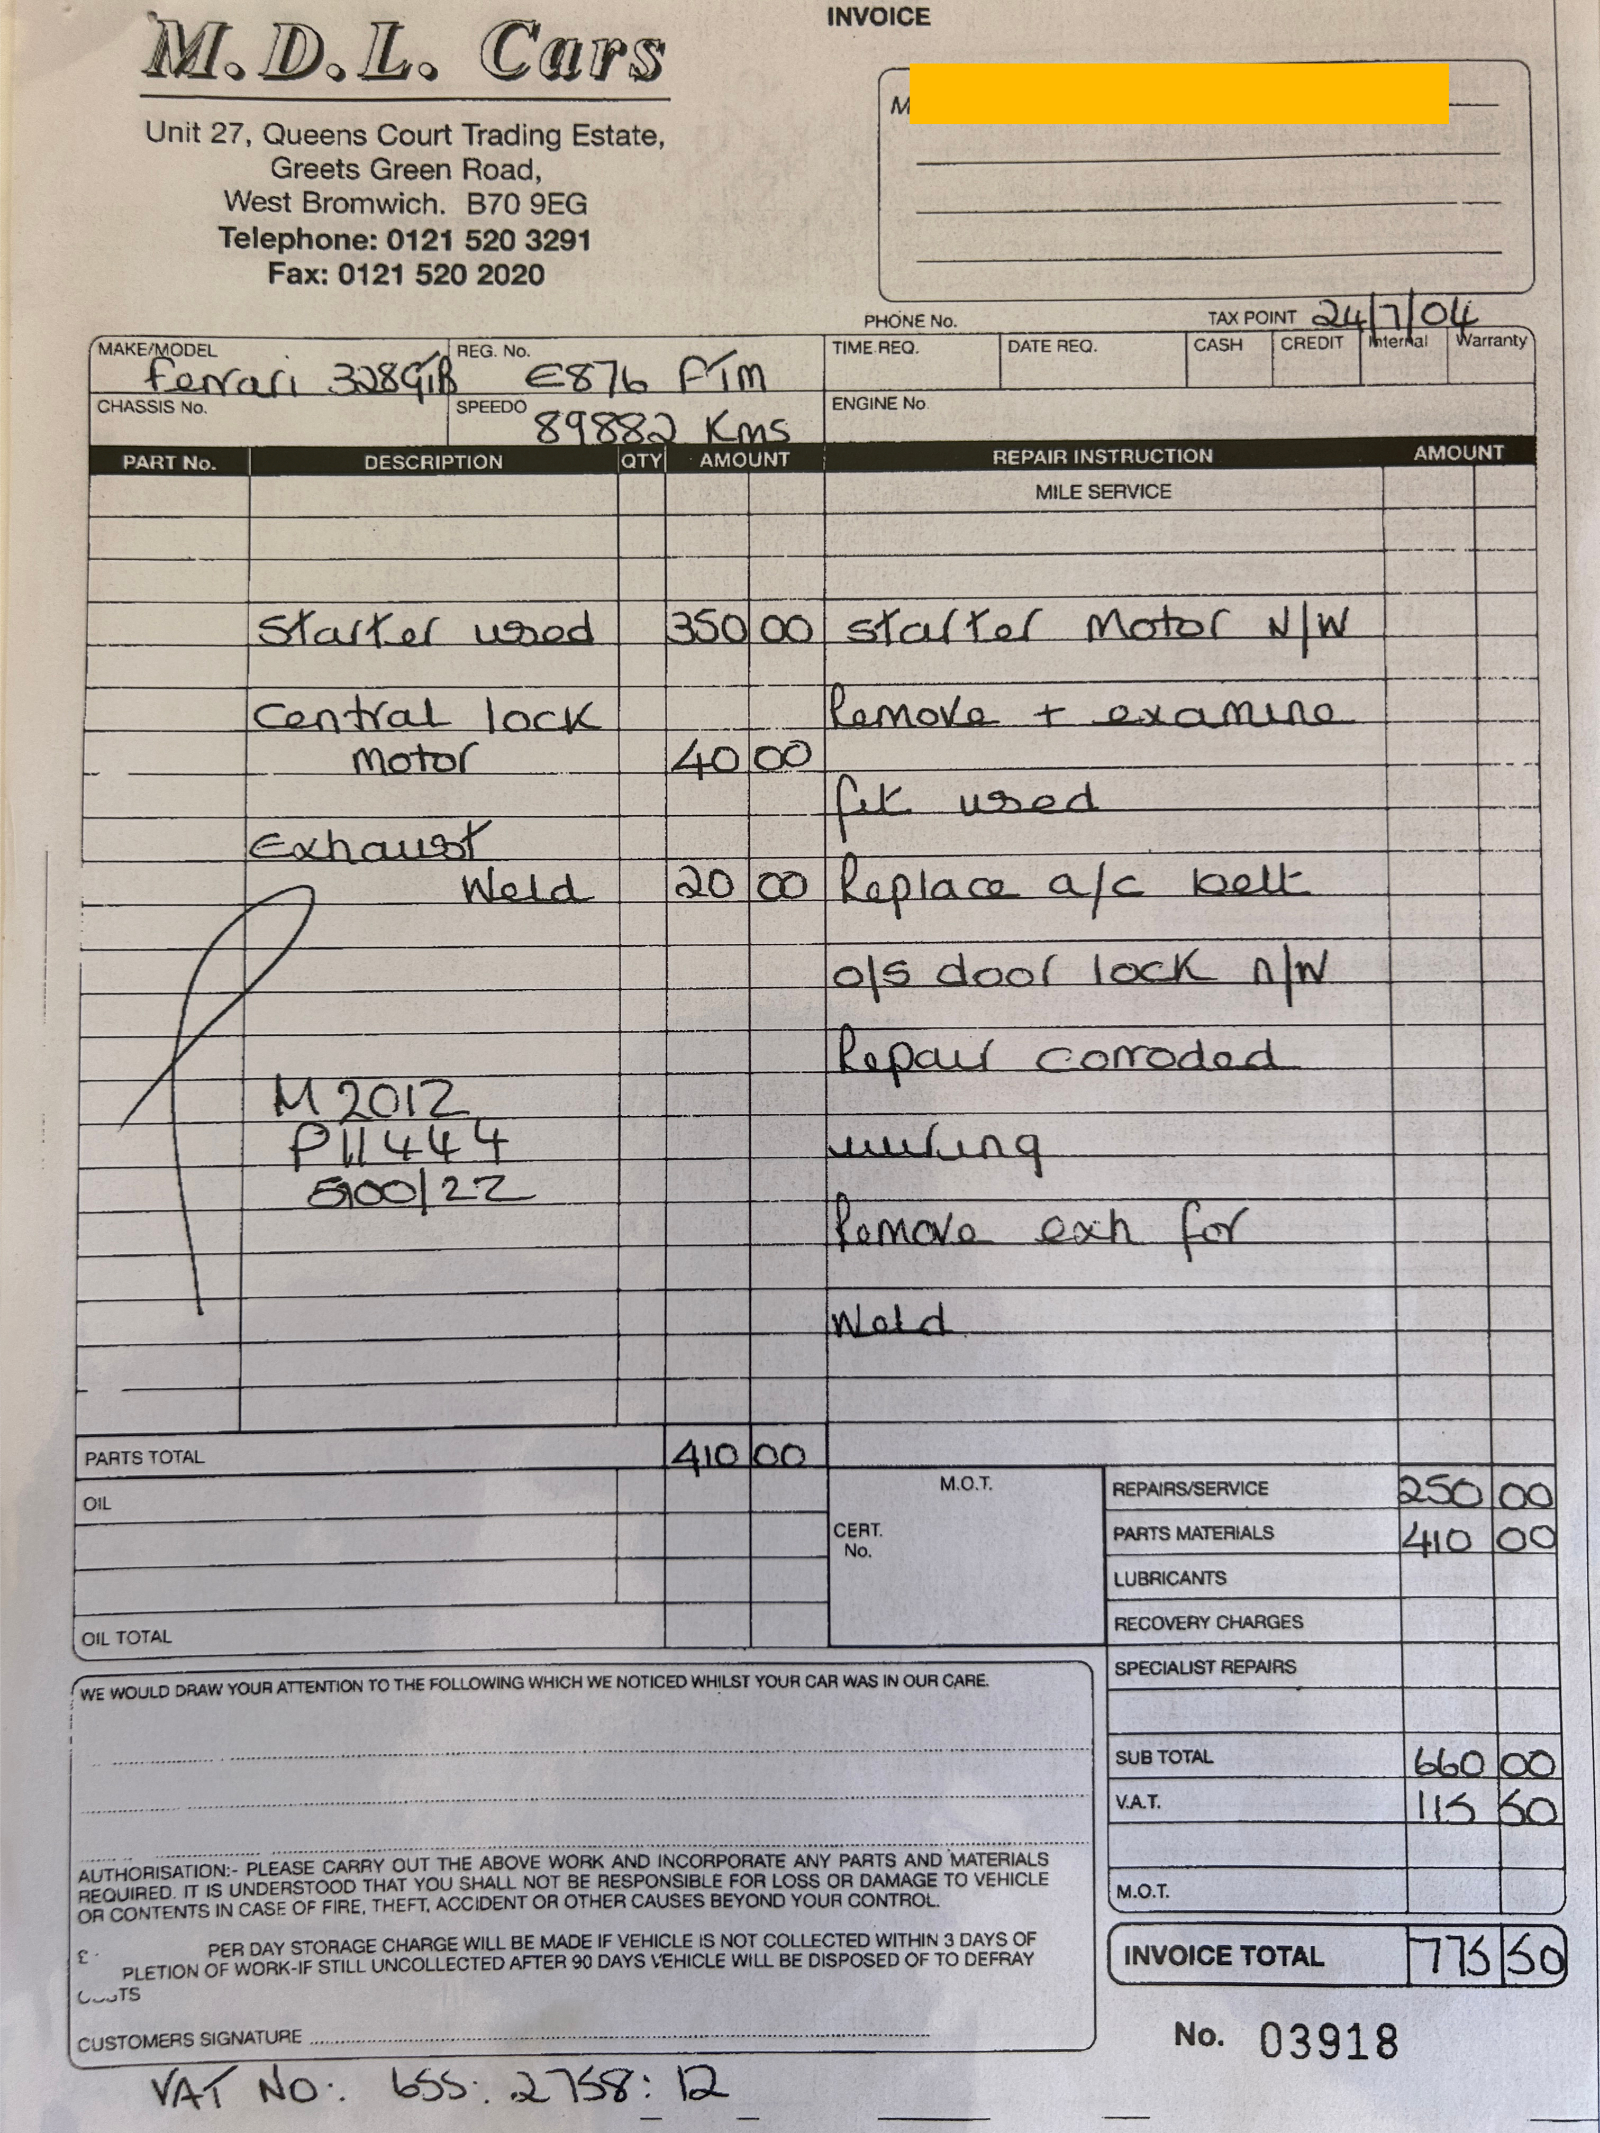 INVOICE
M.D.L. Cars
Unit 27, Queens Court Trading Estate,
Greets Green Road,
West Bromwich. B70 9EG
Telephone: 0121 520 3291
Fax: 0121 520 2020
M
PHONE No.
TAX POINT 24/7/04
MAKE/MODEL Ferrari 328GTB
REG. No. E876 FTM
TIME REQ.
DATE REQ.
CASH
CREDIT
Internal
Warranty
CHASSIS No.
SPEEDO 89882 Kms
ENGINE No
PART No. DESCRIPTION QTY AMOUNT REPAIR INSTRUCTION AMOUNT
MILE SERVICE
Starter used 350 00 starter Motor N/W
Central lock Remove + examine
Motor 40 00
fit used
Exhaust
Weld 20 00 Replace a/c belt
o/s door lock n/w
Repair corroded
M2012
P11444 wiring
5100/22
Remove exh for
Weld
PARTS TOTAL 410 00
OIL
OIL TOTAL
M.O.T.
CERT.
No.
REPAIRS/SERVICE 250 00
PARTS MATERIALS 410 00
LUBRICANTS
RECOVERY CHARGES
SPECIALIST REPAIRS
SUB TOTAL 660 00
V.A.T. 115 50
M.O.T.
INVOICE TOTAL 775 50
No. 03918
WE WOULD DRAW YOUR ATTENTION TO THE FOLLOWING WHICH WE NOTICED WHILST YOUR CAR WAS IN OUR CARE.
AUTHORISATION:- PLEASE CARRY OUT THE ABOVE WORK AND INCORPORATE ANY PARTS AND MATERIALS
REQUIRED. IT IS UNDERSTOOD THAT YOU SHALL NOT BE RESPONSIBLE FOR LOSS OR DAMAGE TO VEHICLE
OR CONTENTS IN CASE OF FIRE, THEFT, ACCIDENT OR OTHER CAUSES BEYOND YOUR CONTROL.
£ PER DAY STORAGE CHARGE WILL BE MADE IF VEHICLE IS NOT COLLECTED WITHIN 3 DAYS OF
PLETION OF WORK-IF STILL UNCOLLECTED AFTER 90 DAYS VEHICLE WILL BE DISPOSED OF TO DEFRAY
TS
CUSTOMERS SIGNATURE
VAT NO: 655: 2758: 12